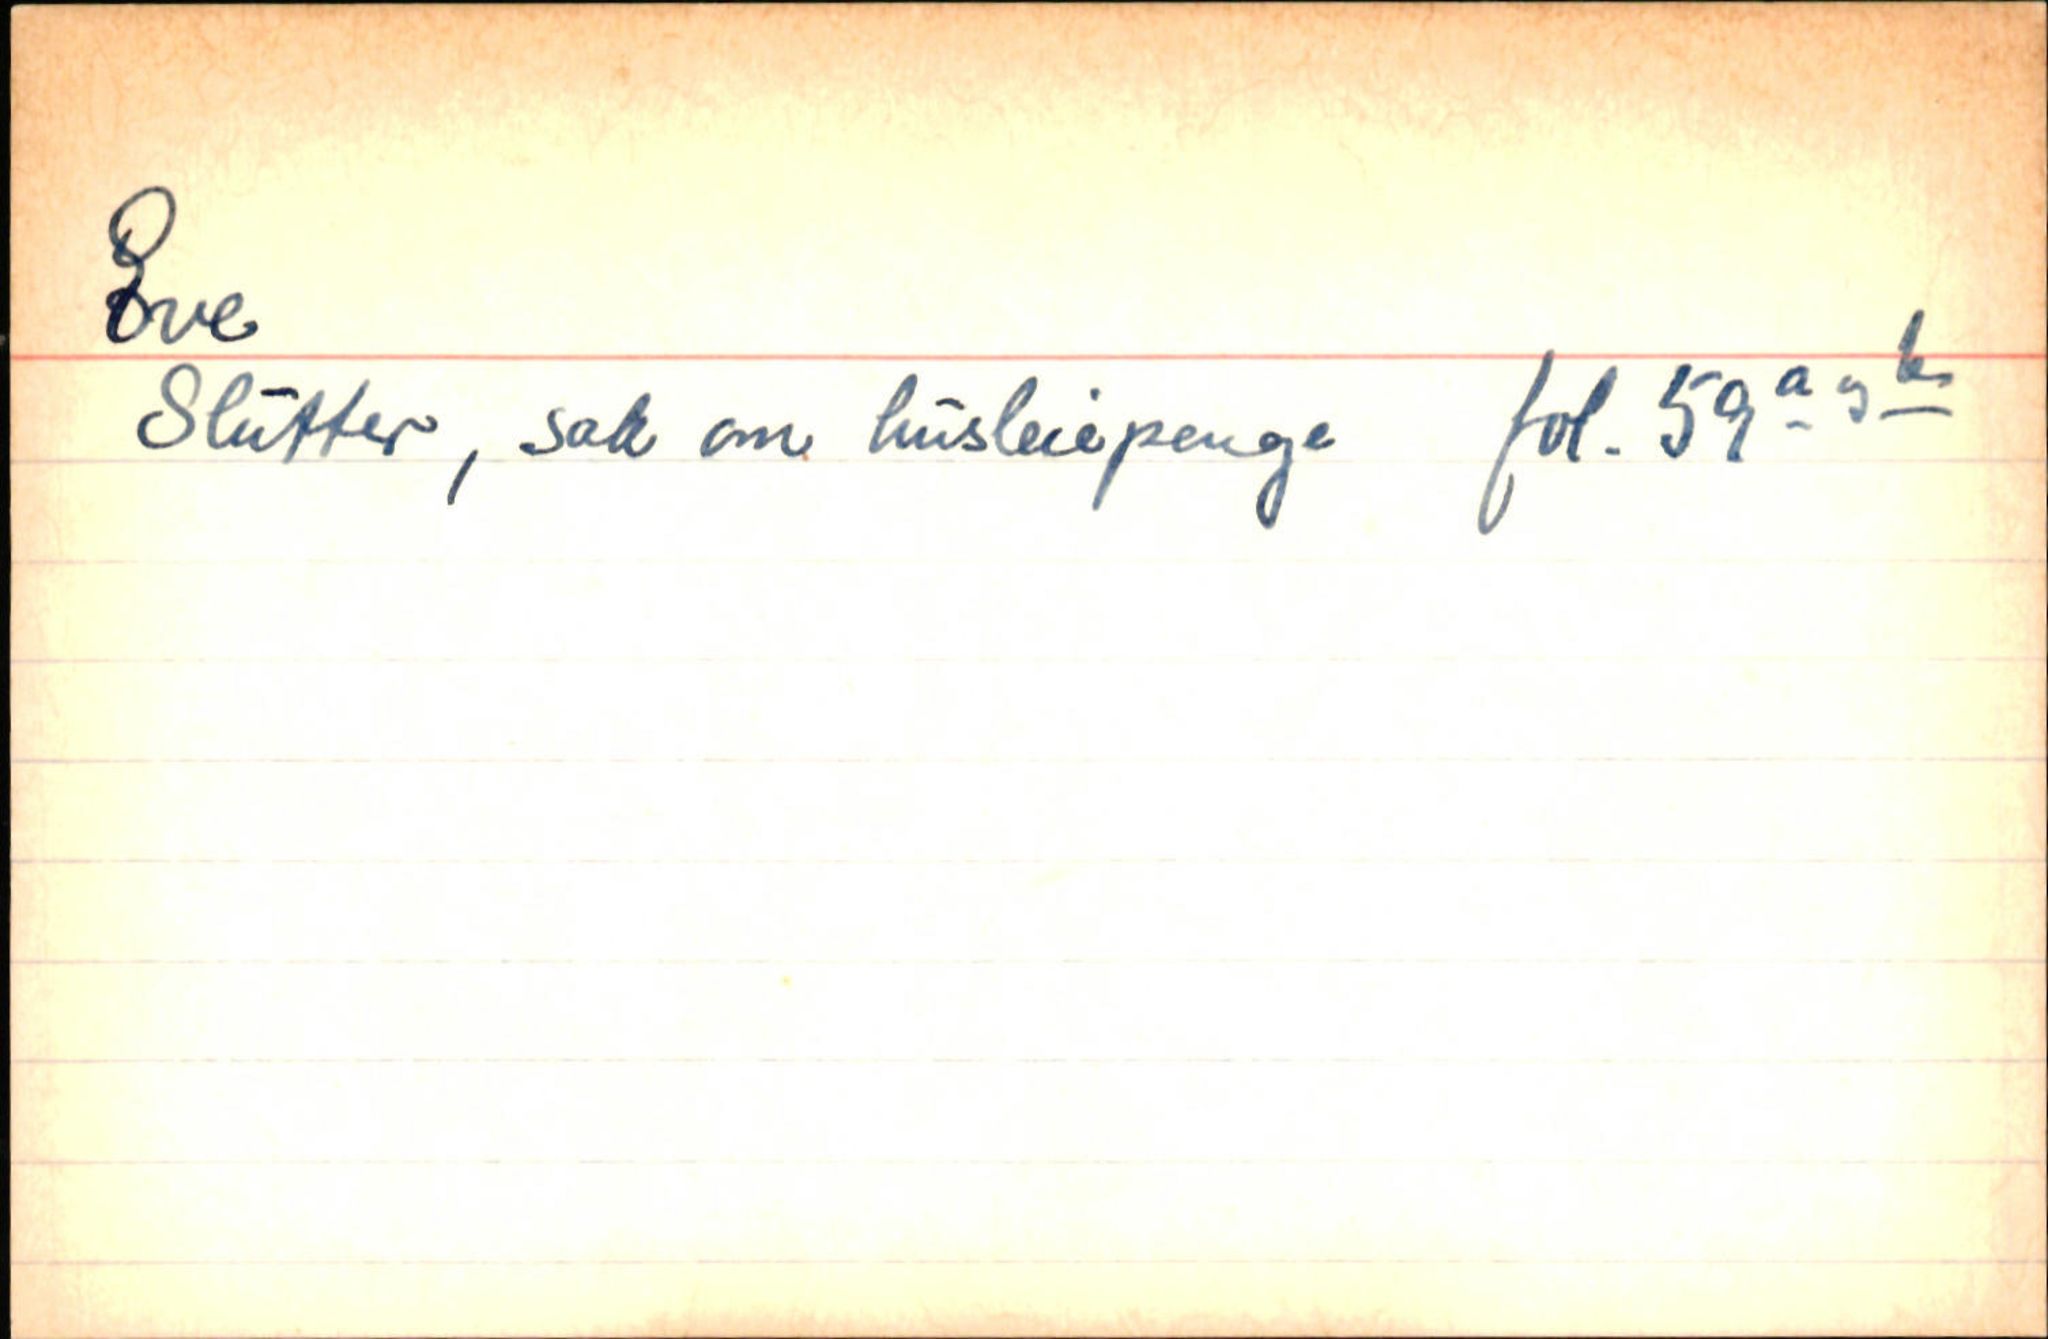 Ove
Slutter, sak om husleiepenge fol. 59 a og b